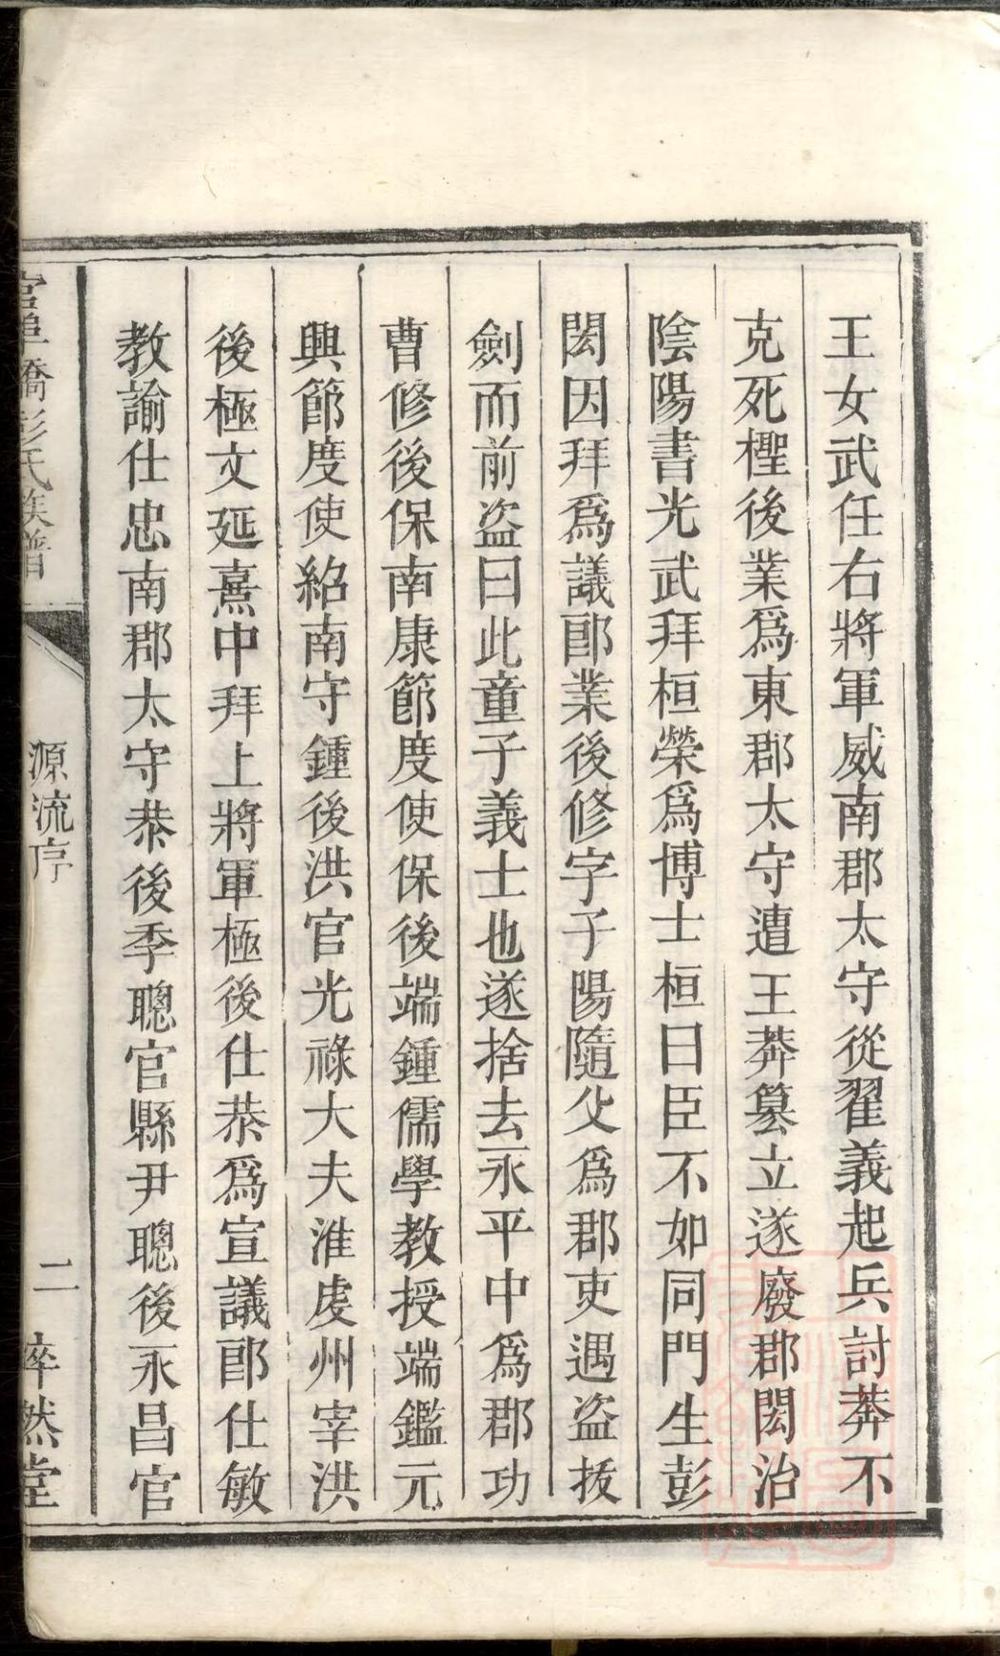 王女武任右將軍威南郡太守從翟義起兵討莽不
克死樫後業爲東郡太守遭王莽篡立遂廢郡閎治
陰陽書光武拜桓榮爲博士桓曰臣不如同門生彭
閎因拜爲議郎業後修字子陽隨父爲郡吏遇盜拔
劍而前盜曰此童子義士也遂捨去永平中爲郡功
曹修後保南康節度使保後端鍾儒學教授端鑑元
興節度使紹南守鍾後洪官光祿大夫淮虔州宰洪
後極文延熹中拜上將軍極後仕恭爲宣議郎仕敏
教諭仕忠南郡太守恭後季聰官縣尹聰後永昌官
橋彭氏族譜
源流序
二
然堂